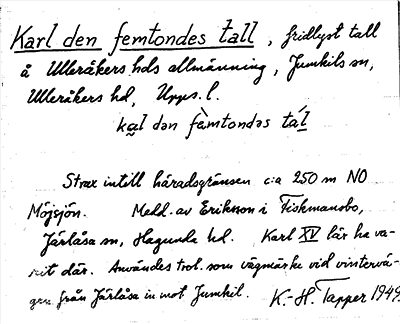 Karl den femtondes tall, fridlyst tall
å Ulleråkers hds allmänning, Jumkils sn,
Ulleråkers hd, Upps. l.
kal dən fèmtondəs tál
Strax intill häradsgränsen c:a 250 m NO
Möjsjön. Medd. av Eriksson i Fiskmansbo,
Järlåsa sn, Hagunda hd. Karl XV lär ha va-
rit där. Användes trol. som vägmärke vid vintervä-
gen från Järlåsa in mot Jumkil. K.-H. Tapper 1949.